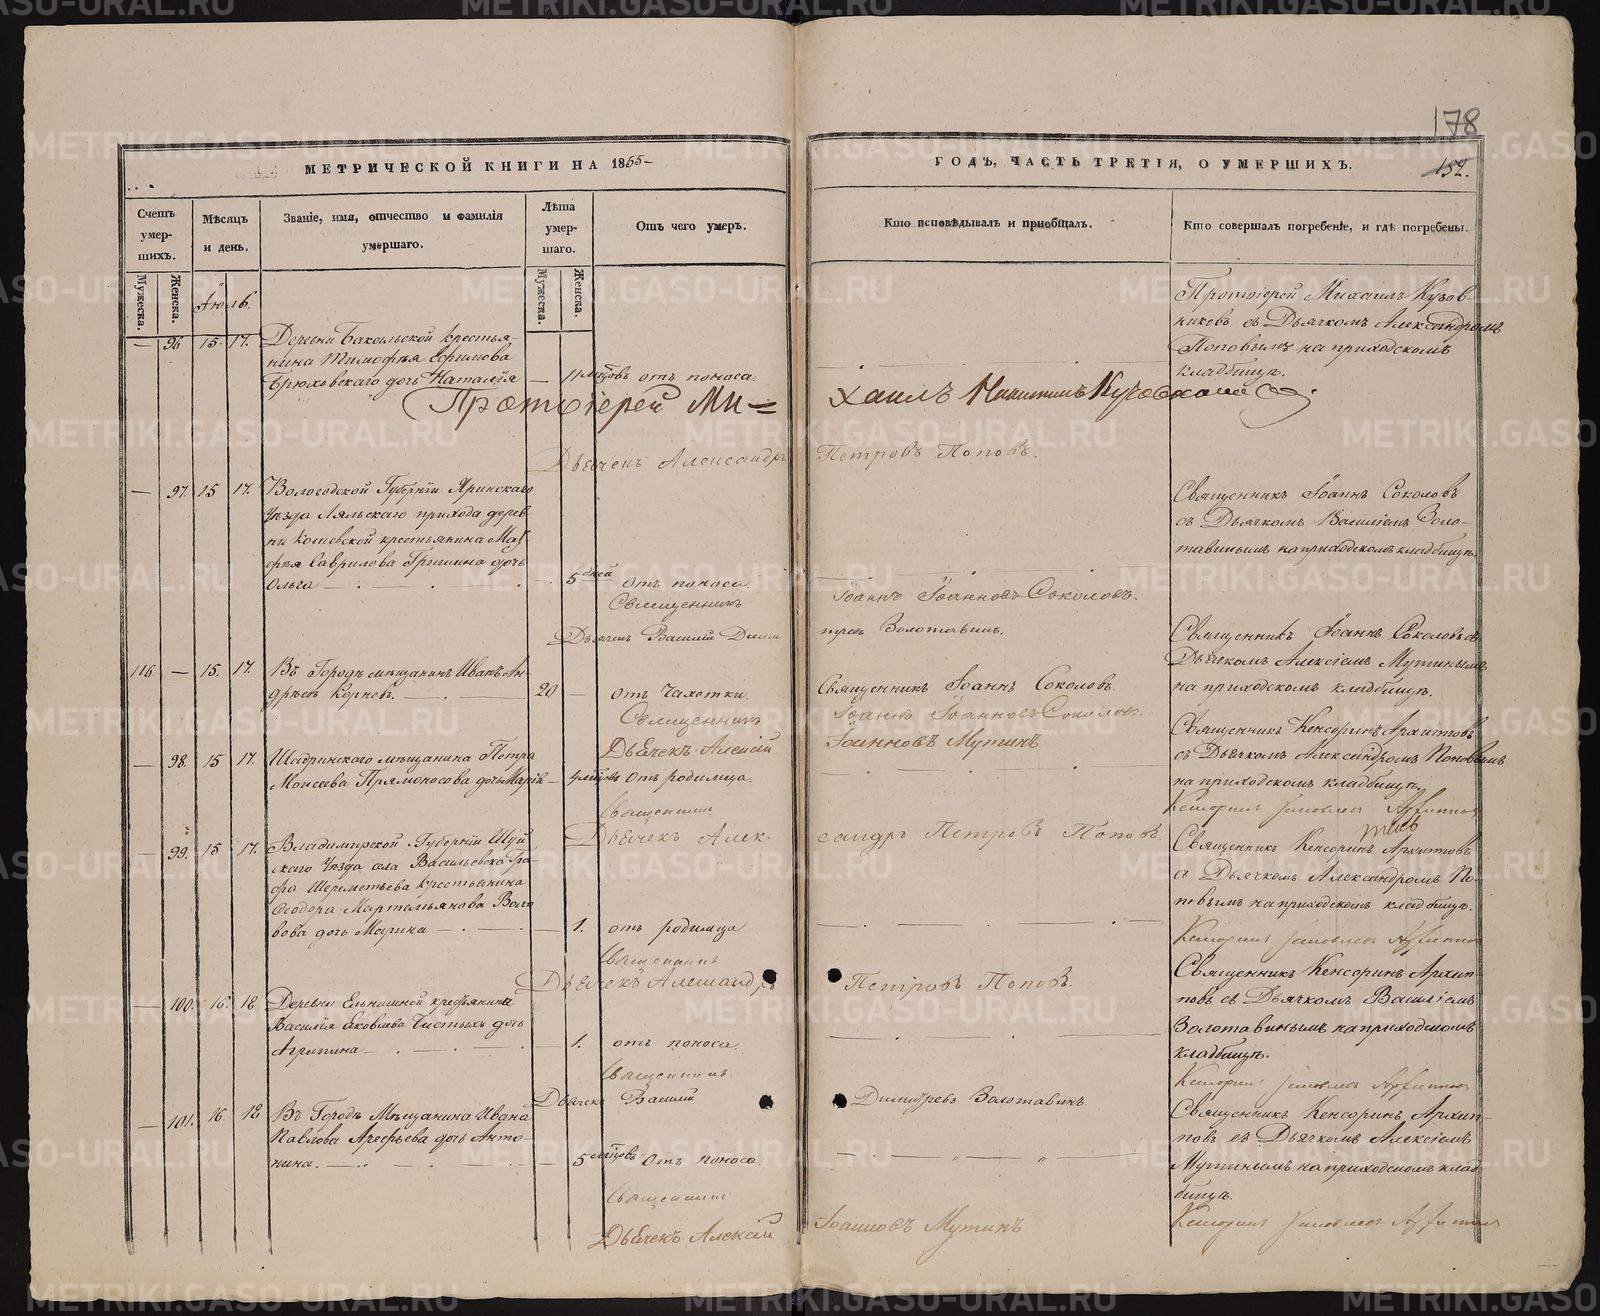 178
МЕТРИЧЕСКОЙ КНИГИ НА 1855
ГОДЪ, ЧАСТЬ ТРЕТІЯ, О УМЕРШИХЪ.
152.
Счетъ умершихъ.
Мѣсяцъ и день.
Званіе, имя, отчество и фамилія умершаго.
Лѣта умершаго.
Отъ чего умеръ.
Кто исповѣдывалъ и пріобщалъ.
Кто совершалъ погребеніе, и гдѣ погребены.
Мужеска.
Женска.
Мужеска.
Женска.
Іюль.
— 96 15 17.
Деревни Бакальской крестья-
нина Тимофѣя Ефимова
Брюховскаго дочь Наталія
— 11 мѣсцовъ отъ поноса.
Протоіерей Михаилъ Кузов-
никовъ съ Дьячкомъ Александромъ
Поповымъ на приходскомъ
кладбищѣ.
Протоіерей Ми=
хаилъ Никитинъ
Дьячекъ Александръ
Петровъ Поповъ.
— 97. 15 17.
Вологодской Губерніи Яринскаго
Уѣзда Ляльскаго прихода дерев-
ни Кошевской крестьянина Мат
фѣя Гаврилова Гришина дочь
Ольга
5 дней отъ поноса
Священникъ Іоаннъ Соколовъ
съ Дьячкомъ Василіемъ Золо-
тавинымъ на приходскомъ кладбищѣ.
Священникъ
Іоаннъ Іоанновъ Соколовъ.
Дьячекъ Василій Дими
тревъ Золотавинъ.
116 — 15. 17.
Въ Городѣ мѣщанинъ Иванъ Ан-
дрѣевъ Корневъ.
20 — отъ Чахотки.
Священникъ Іоаннъ Соколовъ.
Священникъ Іоаннъ Соколовъ съ
Дьячкомъ Алексіемъ Мутинымъ
на приходскомъ кладбищѣ.
Священникъ
Іоаннъ Іоанновъ Соколовъ.
Дьячекъ Алексій
Іоанновъ Мутинъ
— 98. 15 17.
Шадринскаго мѣщанина Петра
Моисеева Прямоносова дочь Марія
— 4 мѣсцовъ отъ родимца.
Священникъ Кенсоринъ Архиповъ
съ Дьячкомъ Александромъ Поповымъ
на приходскомъ кладбищѣ.
Священникъ
Дьячекъ Алек-
сандръ Петровъ Поповъ
— 99. 15 17.
Владимирской Губерніи Шуй-
скаго Уѣзда села Васильевска Гра-
фа Шереметьева крестьянина
Ѳеодора Мартемьянова Воло
вова дочь Марина
— 1. отъ родимца
Священникъ Кенсоринъ Архиповъ
съ Дьячкомъ Александромъ По-
повымъ на приходскомъ кладбищѣ.
Священникъ
Дьячекъ Александръ
Петровъ Поповъ.
— 100. 16. 18.
Деревни Ельнишной крестьянина
Василія Яковлева Чистыхъ дочь
Агрипина
— 1. отъ поноса.
Священникъ Кенсоринъ Архип-
повъ съ Дьячкомъ Василіемъ
Золотавинымъ на приходскомъ
кладбищѣ.
Священникъ
Дьячекъ Василій
Димитревъ Золотавинъ.
— 101. 16 18
Въ Городѣ Мѣщанина Ивана
Павлова Агефьева дочь Анто-
нина.
— 5 мѣсцовъ отъ поноса.
Священникъ Кенсоринъ Архип-
повъ съ Дьячкомъ Алексіемъ
Мутинымъ на приходскомъ клад-
бищѣ.
Священникъ
Дьячекъ Алексій
Іоанновъ Мутинъ
METRIKI.GASO-URAL.RU